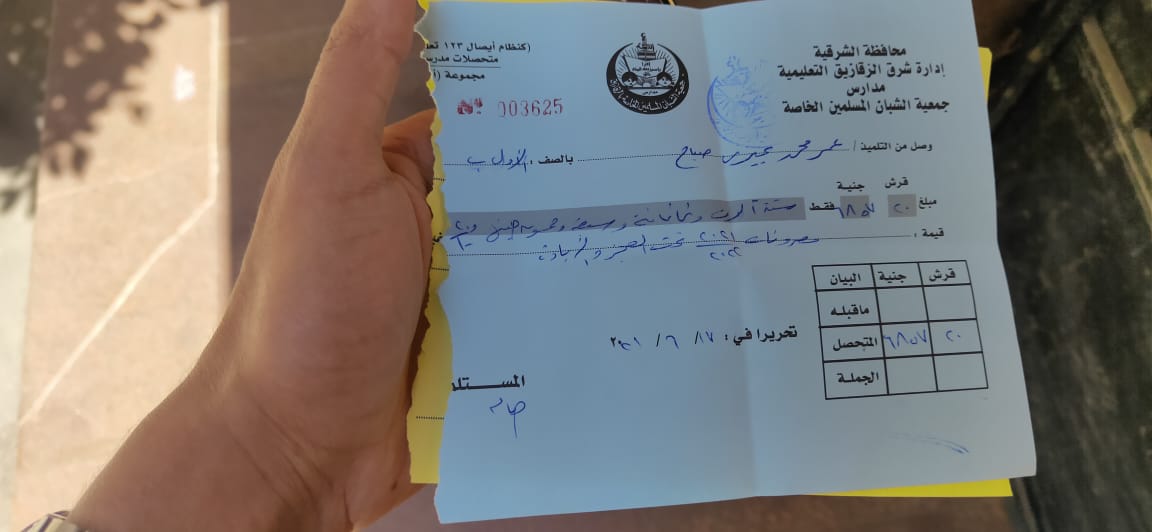 محافظة الشرقية
إدارة شرق الزقازيق التعليمية
مدارس
جمعية الشبان المسلمين الخاصة
(كنظام أيصال ١٢٣ تعا
متحصلات مدرس
مجموعة (أ
Nº 003625
وصل من التلميذ / عمر محمد صباح بالصف : الأول ب
قرش جنية
مبلغ ٢٠ ٦٨٥٧ فقط ستة آلاف وثمانمائة وسبعة وخمسون جنيه
قيمة : مصروفات ٢٠٢١/٢٠٢٢ تحت العجز والزيادة
قرش جنية البيان
ماقبله
٢٠ ٦٨٥٧ المتحصل
الجملة
تحريرا في : ١٧ / ٦ / ٢٠٢١
المستلم